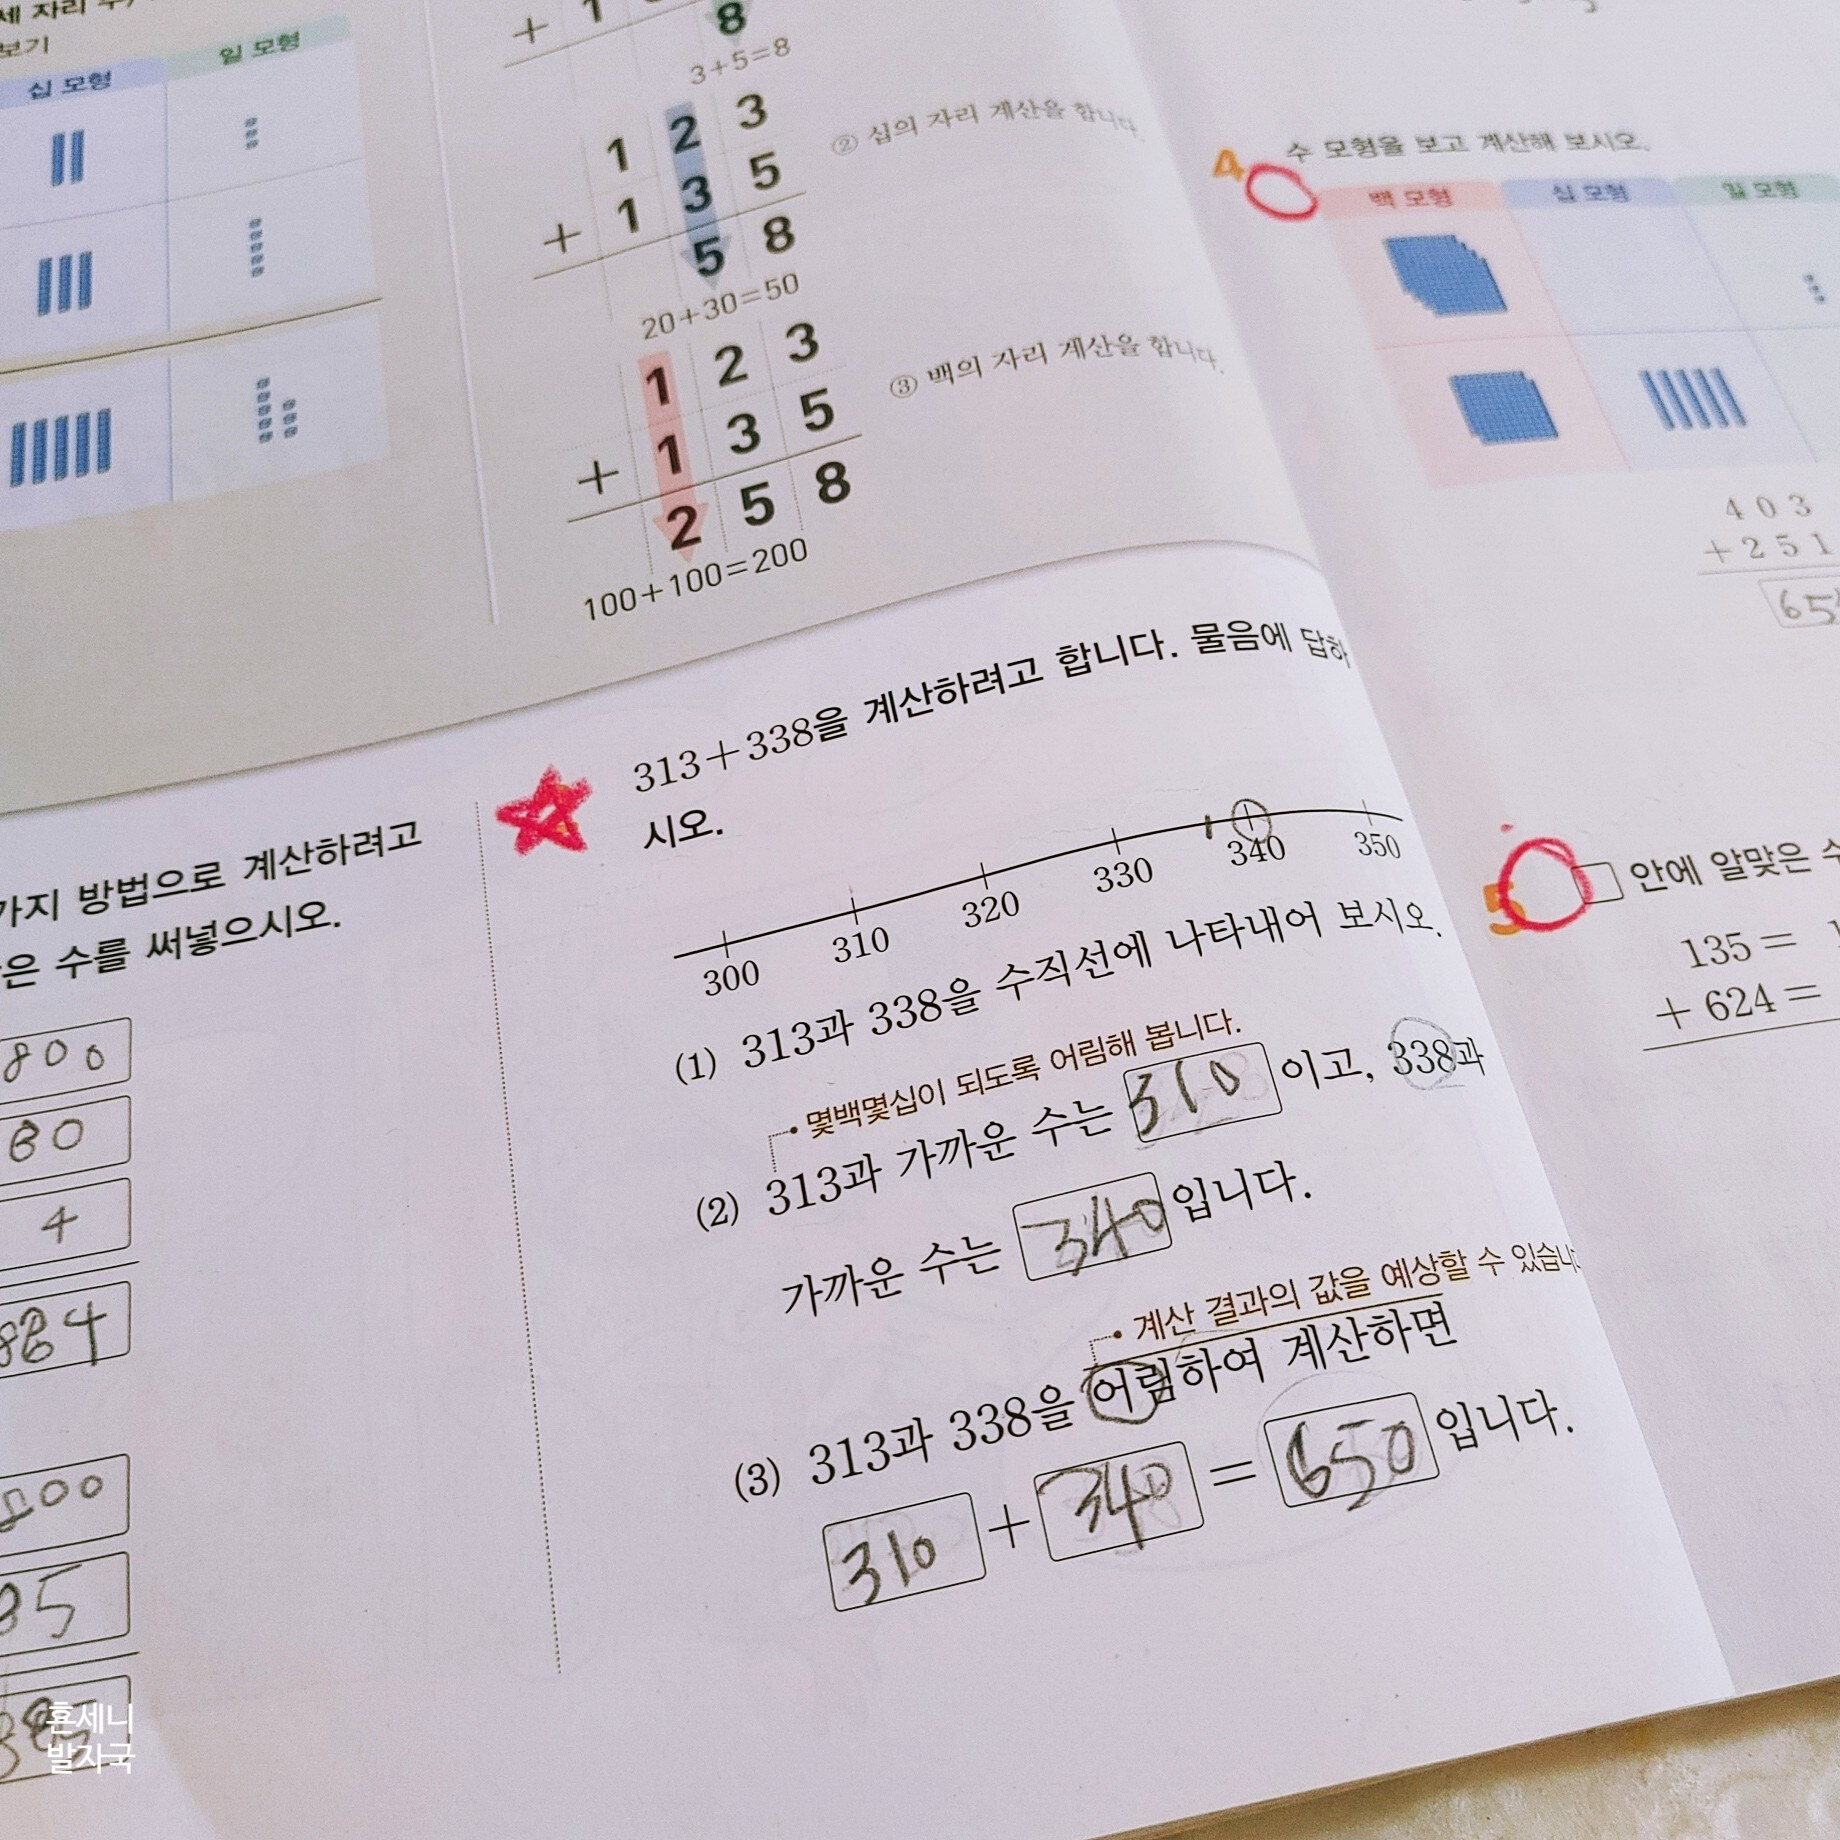 세 자리 수
보기
십 모형 일 모형
+ 1
8
3+5=8
1 2 3
+ 1 3 5
5 8
20+30=50
② 십의 자리 계산을 합니다.
1 2 3
+ 1 3 5
2 5 8
100+100=200
③ 백의 자리 계산을 합니다.
가지 방법으로 계산하려고
은 수를 써넣으시오.
800
80
4
884
800
85
313+338을 계산하려고 합니다. 물음에 답하
시오.
300 310 320 330 340 350
(1) 313과 338을 수직선에 나타내어 보시오.
몇백몇십이 되도록 어림해 봅니다.
(2) 313과 가까운 수는 310 이고, 338과
가까운 수는 340 입니다.
계산 결과의 값을 예상할 수 있습니
(3) 313과 338을 어림하여 계산하면
310 + 340 = 650 입니다.
4 수 모형을 보고 계산해 보시오.
백 모형 십 모형 일 모형
403
+251
65
5 안에 알맞은 수
135= 1
+ 624=
혼세니
발자국